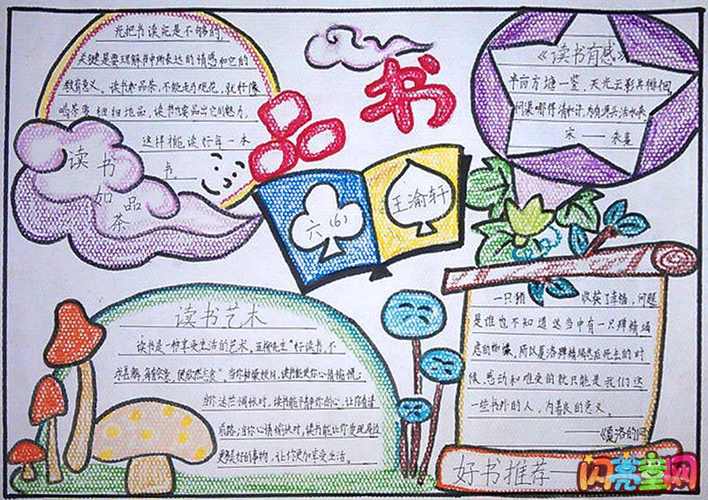 品书
死把书读完是不够的,
关键是要理解书中所表达的情感和它的
教育意义。读书如品茶,不能走马观花,就好像
喝茶要细细地品,读书也要品出它的魅力,
这样才能读好每一本
书
读书
如品
茶
六(6)
王渝轩
《读书有感》
半亩方塘一鉴,天光云影共徘徊
问渠哪得清如许,为有源头活水来
宋——朱熹
读书艺术
读书是一种享受生活的艺术。五柳先生“好读书,不
求甚解,每有会意,便欣然忘食”。当你枯燥烦闷,读书能使你心情愉悦;
当你迷茫惆怅时,读书能平静你的心,让你看清
前路;当你心情愉快时,读书能让你发现身边
更美好的事物,让你更加享受生活。
一只猪 收获了幸福,问题
是谁也不知道这当中有一只
的蜘蛛,所以夏洛 死去的时
候,感动和难受的就只能是我们这
一些书外的人,内 的意义。
好书推荐
闪亮童网